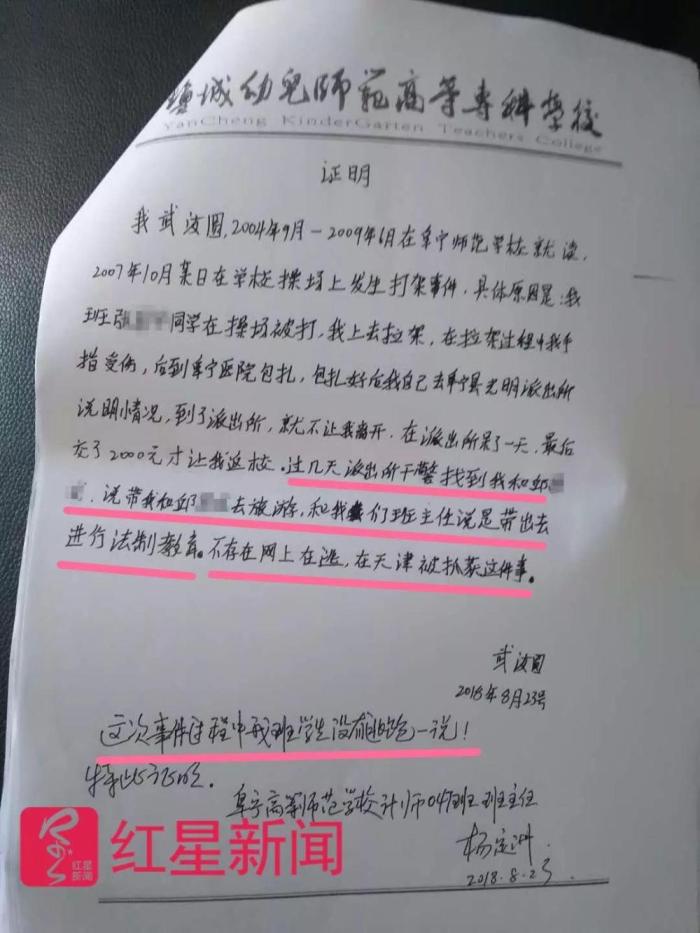 盐城幼儿师范高等专科学校
YanCheng KinderGarten Teachers College
证明
我武汝圆,2004年9月-2009年6月在阜宁师范学校就读,
2007年10月某日在学校操场上发生打架事件,具体原因是:我
班张 同学在操场被打,我上去拉架,在拉架过程中我手
指受伤,后到阜宁医院包扎,包扎好后我自己去阜宁县光明派出所
说明情况,到了派出所,就不让我离开,在派出所呆了一天,最后
交了2000元才让我返校。过几天派出所干警找到我和邱
,说带我和邱 去旅游,和我们班主任说是带出去
进行法制教育。不存在网上在逃,在天津被抓获这件事。
武汝圆
2018年8月23号
这次事件过程中我班学生没有逃跑一说!
特此证明。
阜宁高等师范学校计师04级班班主任
杨
2018.8.23
红星新闻
红星
新闻